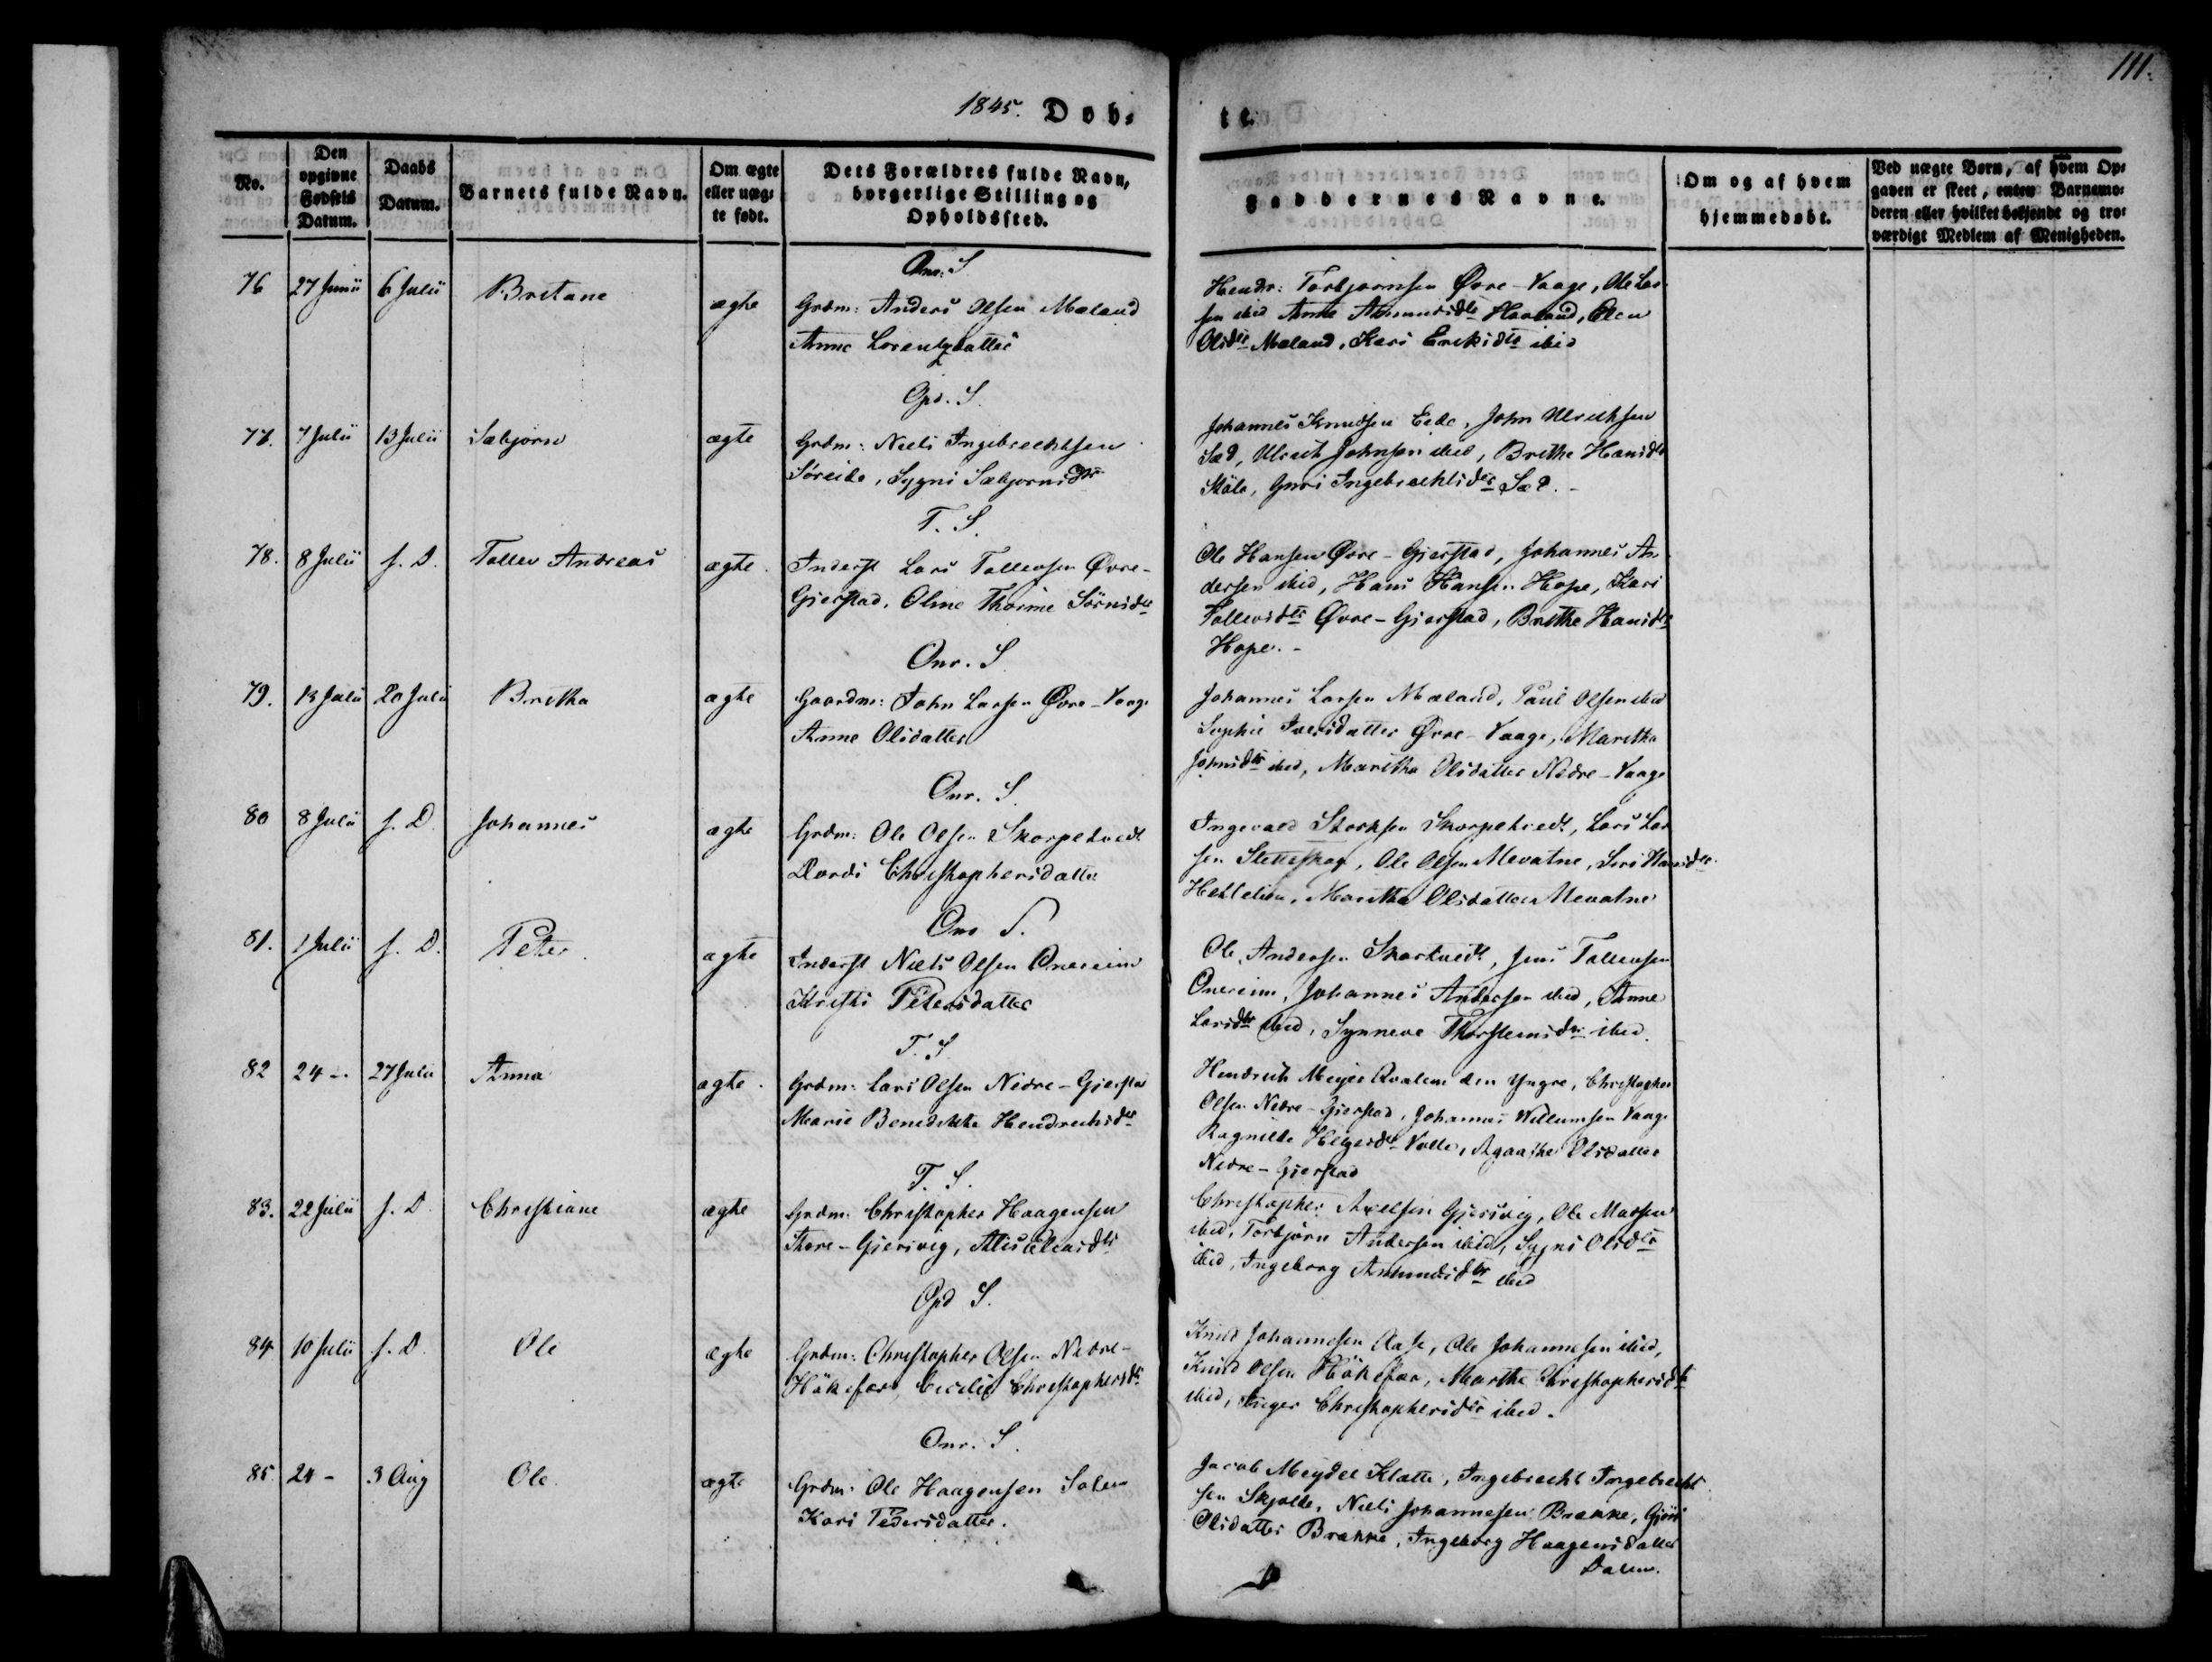 111.
1845. Døb-
te.
No.
Den opgivne Fødsels Datum.
Daabs Datum.
Barnets fulde Navn.
Om ægte eller uæg-te født.
Dets Forældres fulde Navn, borgerlige Stilling og Opholdssted.
Faddernes Navne.
Om og af hvem hjemmedøbt.
Ved uægte Børn, af hvem Op-gaven er skeet, enten Barnemo-deren eller hvilket bekjendt og tro-værdigt Medlem af Menigheden.
Onr. S.
76 27 Junii 6 Julii Britane ægte Grdm: Anders Olsen Mæland
Anne Lorentzdatter
Hendr: Torbjørnsen Øvre-Vaage, Ole Lar-
sen ibid Anne Amundsdtr Havland, Elen
Olsdtr Mæland, Kari Eriksdtr ibid
Opd. S.
77. 7 Julii 13 Julii Sæbjørn ægte Grdm: Niels Ingebrechtsen
Søreide, Sygni Sæbjørnsdtr
Johannes Knudsen Eide, John Ulrichsen
Sæd, Ulrich Johnsen ibid, Brithe Hansdtr
Skåle, Guri Ingebrechtsdtr Sæd.
T. S.
78. 8 Julii s. D. Tollev Andreas ægte. Inderst Lars Tollevsen Øvre-
Gjerstad, Oline Thorine Sörnsdtr
Ole Hansen Øvre-Gjerstad, Johannes An-
dersen ibid, Hans Hansen Hope, Kari
Tollevsdtr Øvre-Gjerstad, Brithe Hansdtr
Hope.
Onr. S.
79. 13 Julii 20 Julii Britha ægte Gaardm: John Larsen Øvre-Vaage
Anne Olsdatter
Johannes Larsen Mæland, Paul Olsen ibid
Sophie Iversdatter Øvre-Vaage, Maritha
Johnsdtr ibid, Maritha Olsdatter Nedre-Vaage
Onr. S.
80 8 Julii s. D. Johannes ægte Grdm: Ole Olsen Skorpetvedt
Dordi Christophersdatter
Ingevald Storksen Skorpetvedt, Lars Lar-
sen Sletteskog, Ole Olsen Mevatne, Siri Hansdtr
Hetlelien, Maritha Olsdatter Mevatne
Onr S.
81. 1 Julii s. D. Peter. ægte Inderst Niels Olsen Onereim
Kristi Petersdatter
Ole Andersen Skortvedt, Jens Tollevsen
Onereim, Johannes Andersen ibid, Anne
Larsdtr ibid, Synneve Thorsteinsdtr ibid.
T. S.
82 24 - 27 Julii Anna ægte. Grdm: Lars Olsen Nedre-Gjerstad
Marie Benedikte Hendrichsdtr
Hendrich Meyer Qvalem den Yngre, Christopher
Olsen Nedre-Gjerstad, Johannes Willumsen Vaage
Ragnilde Helgesdtr Valle, Agaathe Olsdatter
Nedre-Gjerstad
T. S.
83. 22 Julii s. D. Christiane ægte Grdm: Christopher Haagensen
Store-Gjersvig,
Christopher Axelsen Gjersvig, Ole Madsen
ibid, Torbjørn Andersen ibid, Sygni Olsdtr
ibid, Ingeborg Amundsdtr ibid
Opd S.
84 10 Julii s. D. Ole ægte Grdm: Christopher Olsen Nedre-
Hökefær, Cecilie Christophersdtr
Knud Johannesen Aase, Ole Johannesen ibid,
Knud Olsen Hökefær, Marthe Christophersdtr
ibid, Inger Christophersdtr ibid.
Onr. S.
85. 24 - 3 Aug Ole ægte Grdm: Ole Haagensen Solem
Kari Pedersdatter.
Jacob Meydel Klatte, Ingebrecht Ingebrecht-
sen Skjelde, Niels Johannesen Brække, Gjøri
Olsdatter Brække, Ingeborg Haagensdatter
Dalen.